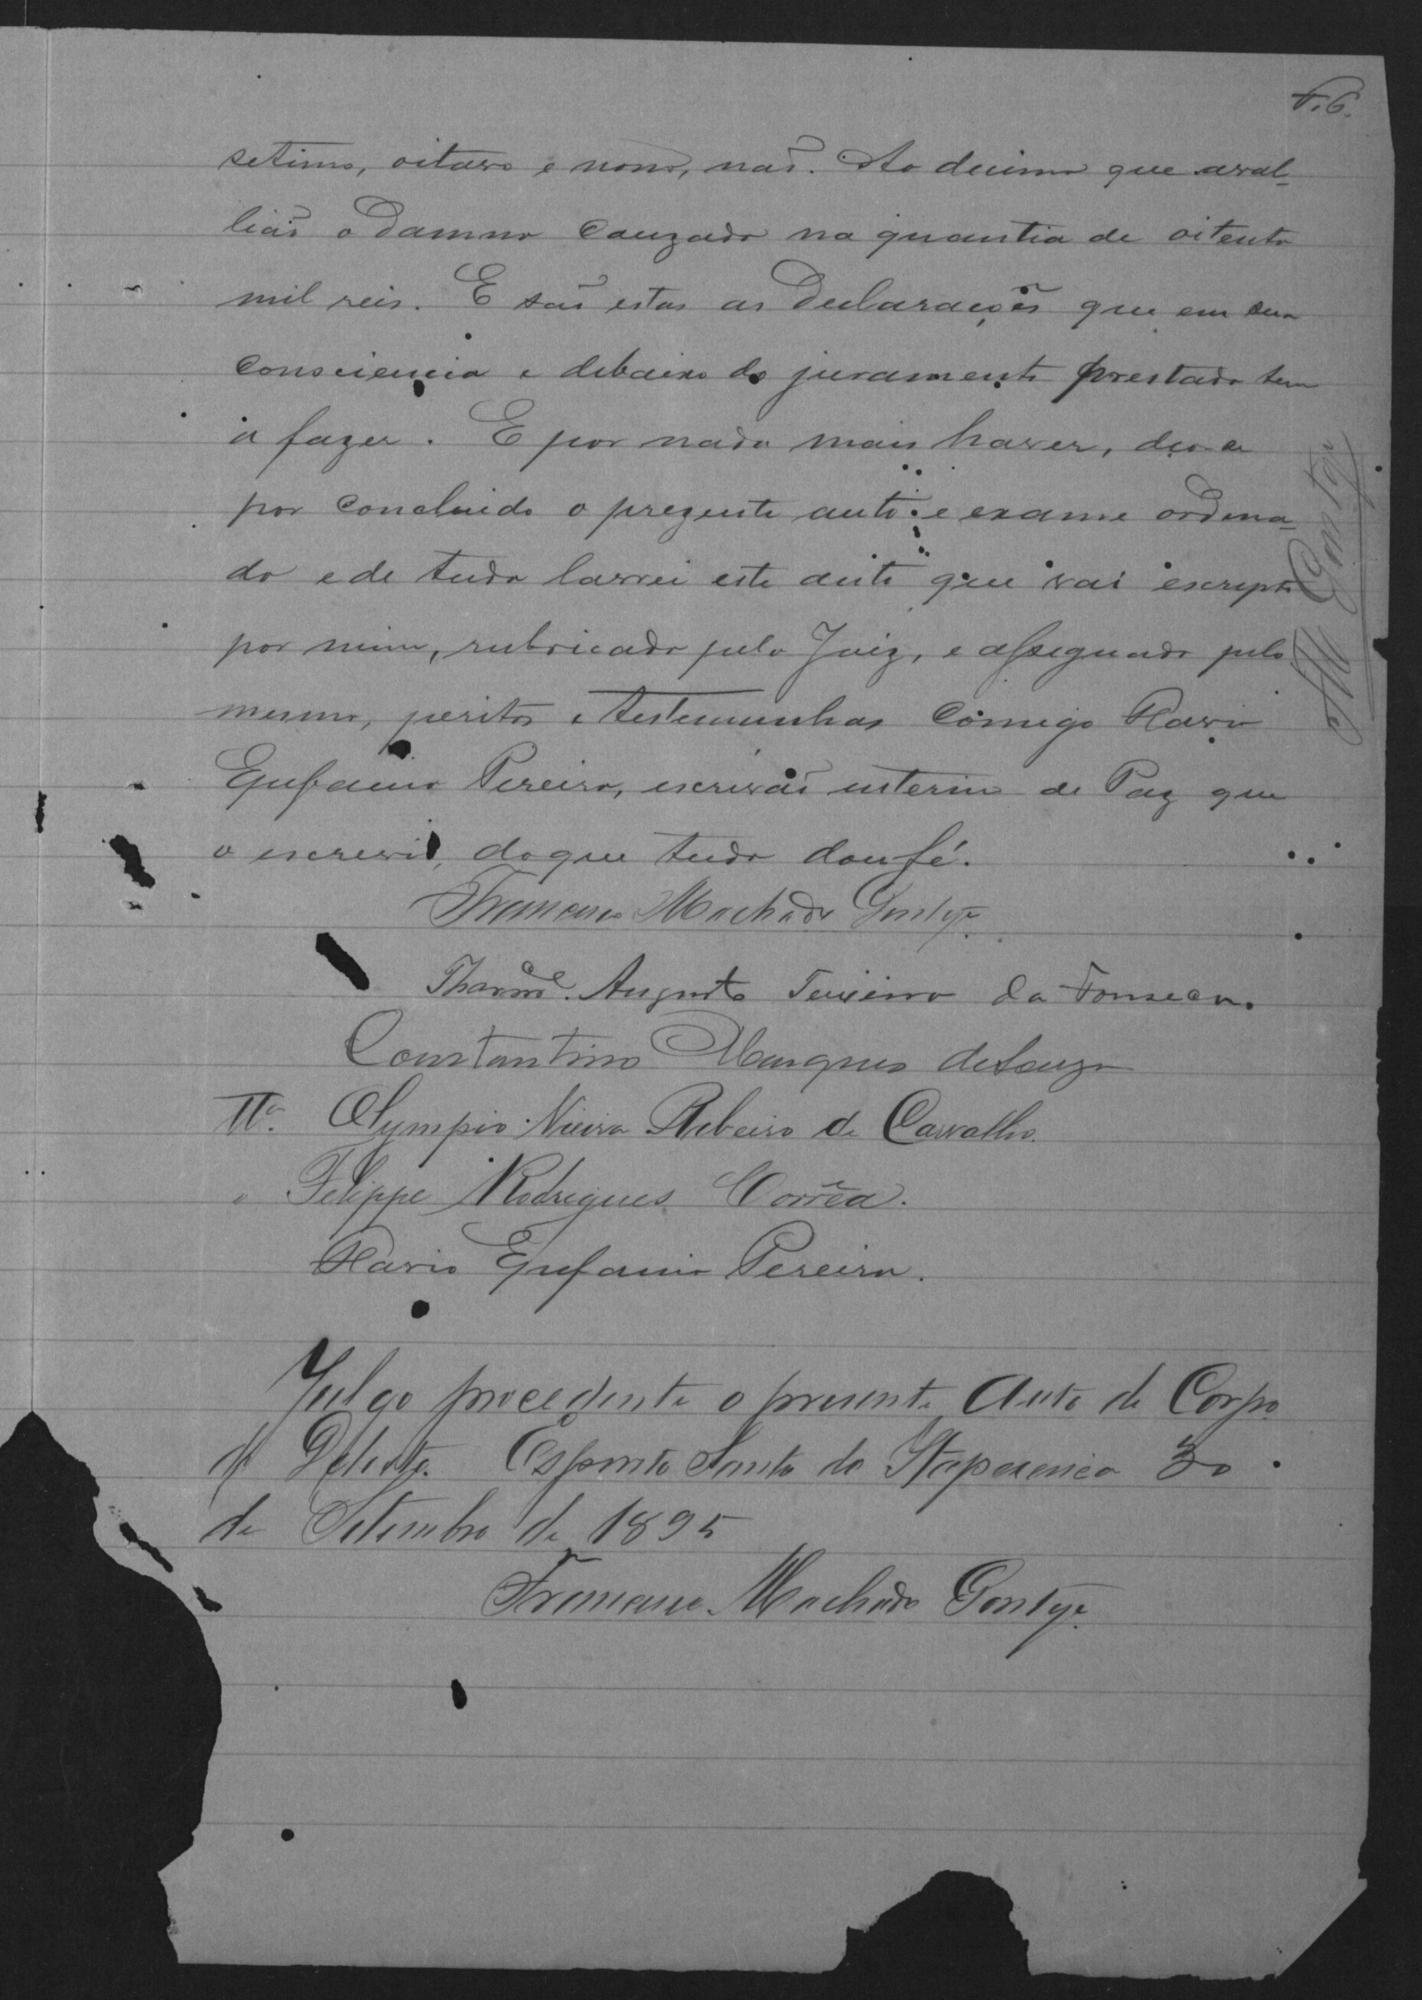 f. 6.
setimo, oitavo e nono, não. Ao decimo que aval-
lião o damno cauzado na quantia de oitenta
mil reis. E são estas as declarações que em sua
consciencia e debaixo do juramento prestado tem
a fazer. E por nada mais haver, deo-se
por concluido o prezente auto e exame ordena-
do e de tudo lavrei este auto que vai escripto
por mim, rubricado pelo Juiz, e assignado pelo
mesmo, peritos e testemunhas comigo Flavio
Epifanio Pereira, escrivão interino de Paz que
o escrevi, do que tudo dou fé.
Machado Gontijo
Augusto Teixeira da Fonseca.
Constantino Marques de Souza
Tta. Olympio Vieira Ribeiro de Carvalho.
" Felippe Rodrigues Corrêa.
Flavio Epifanio Pereira.
Julgo procedente o presente Auto de Corpo
de Delicto. Espirito Santo do Itapecerica 30
de Setembro de 1895
Machado Gontijo
M Gontijo